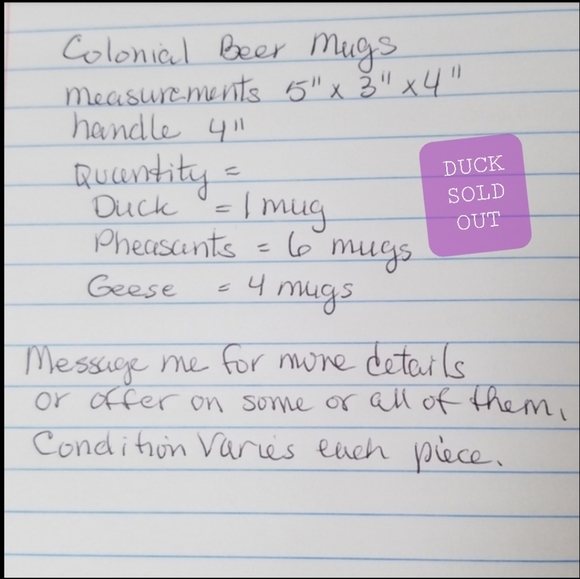 Colonial Beer Mugs
measurements 5" x 3" x 4"
handle 4"
Quantity =
Duck = 1 mug
Pheasants = 6 mugs
Geese = 4 mugs
DUCK
SOLD
OUT
Message me for more details
or offer on some or all of them.
Condition Varies each piece.